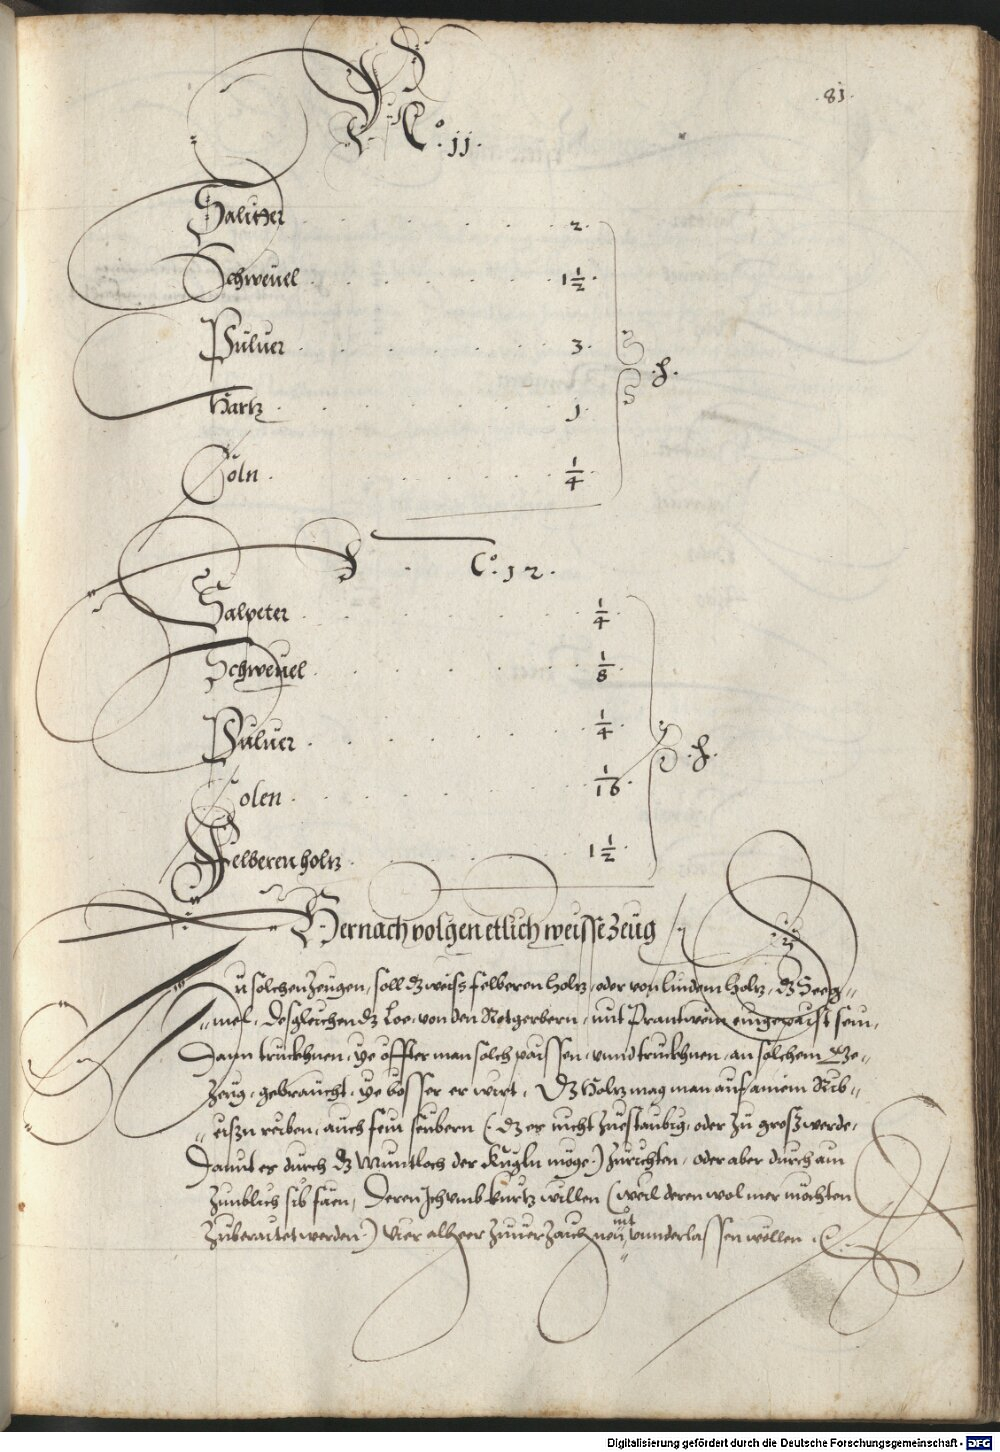 81.
No. 11.
Saliter 2.
Schweuel 1 1/2.
Puluer 3.
Hartz 1.
Coln 1/4.
.lb.
No. 12.
Salpeter 1/4.
Schweuel 1/8.
Puluer 1/4.
Colen 1/16.
Felberen holtz 1 1/2.
.lb.
Hernach volgen etlich weisse zeug
Zu solchen zeugen, soll dz weiss felberen holtz, oder von lindem holtz, dz Seeg-
mel, desgleichen dz Loe, von den Rotgerbern, mit Prantwein eingepaist sein,
Dann truckhnen, ye öffter man solch paissen, vnnd truckhnen, an solchem
zeug, gebraucht, ye bösser er wirt, Dz Holtz mag man auf ainem Rib-
eisn reiben, auch fein seubern (dz es nicht zuestaubig, oder zu gross werde,
Damit es durch dz Muntloch der Kugln möge) zurichten, oder aber durch ain
zimblich sib säen, Deren Ich vmb kurtz willen (weil deren wol mer möchten
zuberaitet werden) vier alhier zuuerzaichnen, nit vnnderlassen wöllen
Digitalisierung gefördert durch die Deutsche Forschungsgemeinschaft - DFG